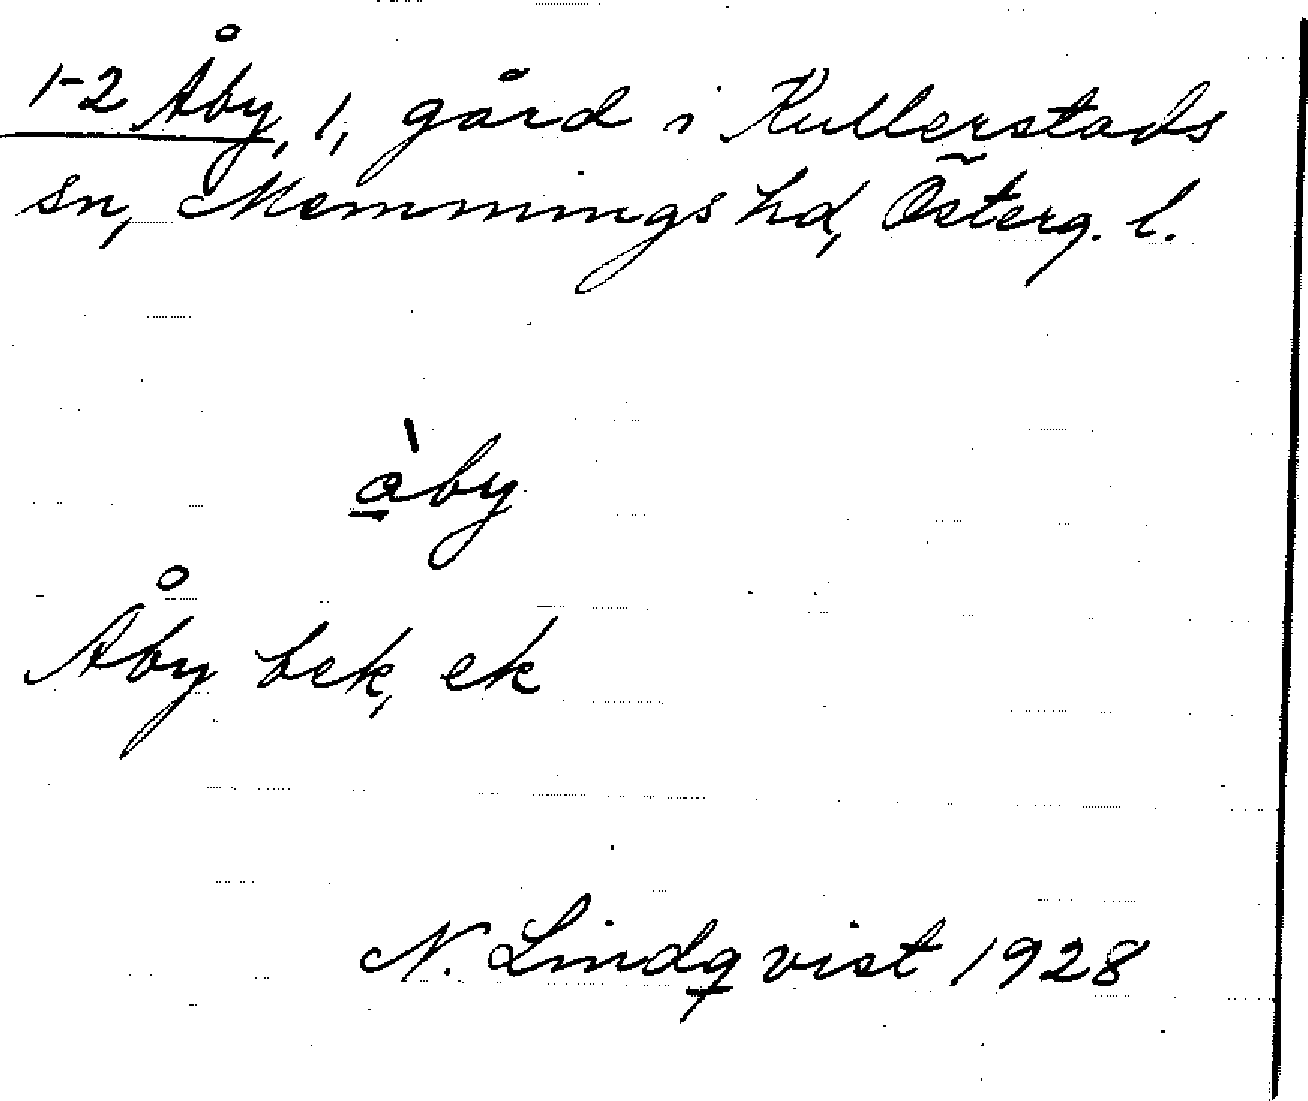 1-2 Åby, 1, gård i Kullerstads
sn, Memmings hd, Österg. l.
àby
Åby bek, ek
N. Lindqvist 1928